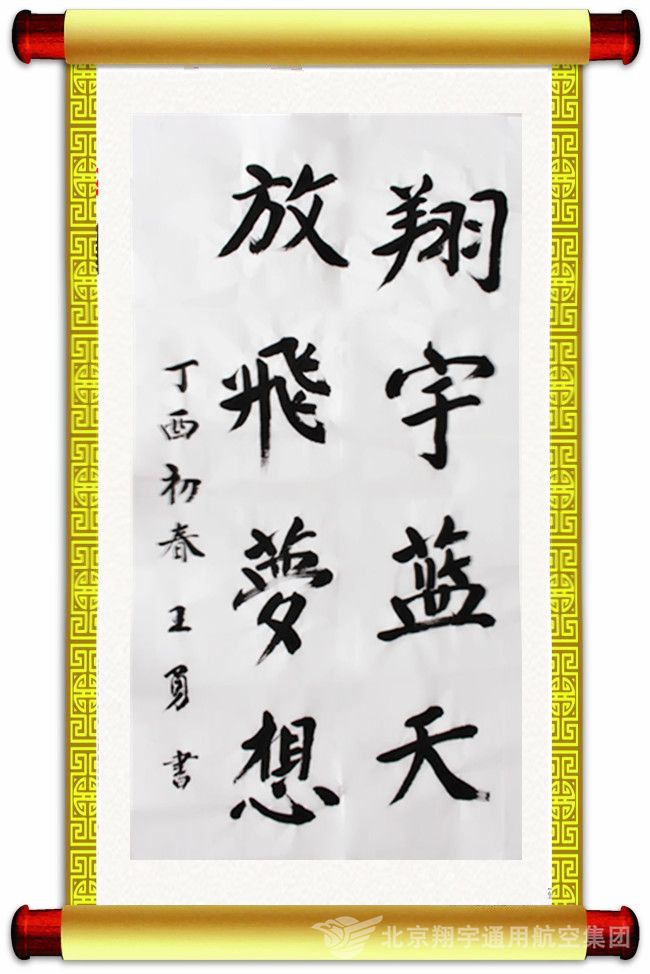 翔宇蓝天
放飛夢想
丁酉初春 王勇 書
北京翔宇通用航空集团